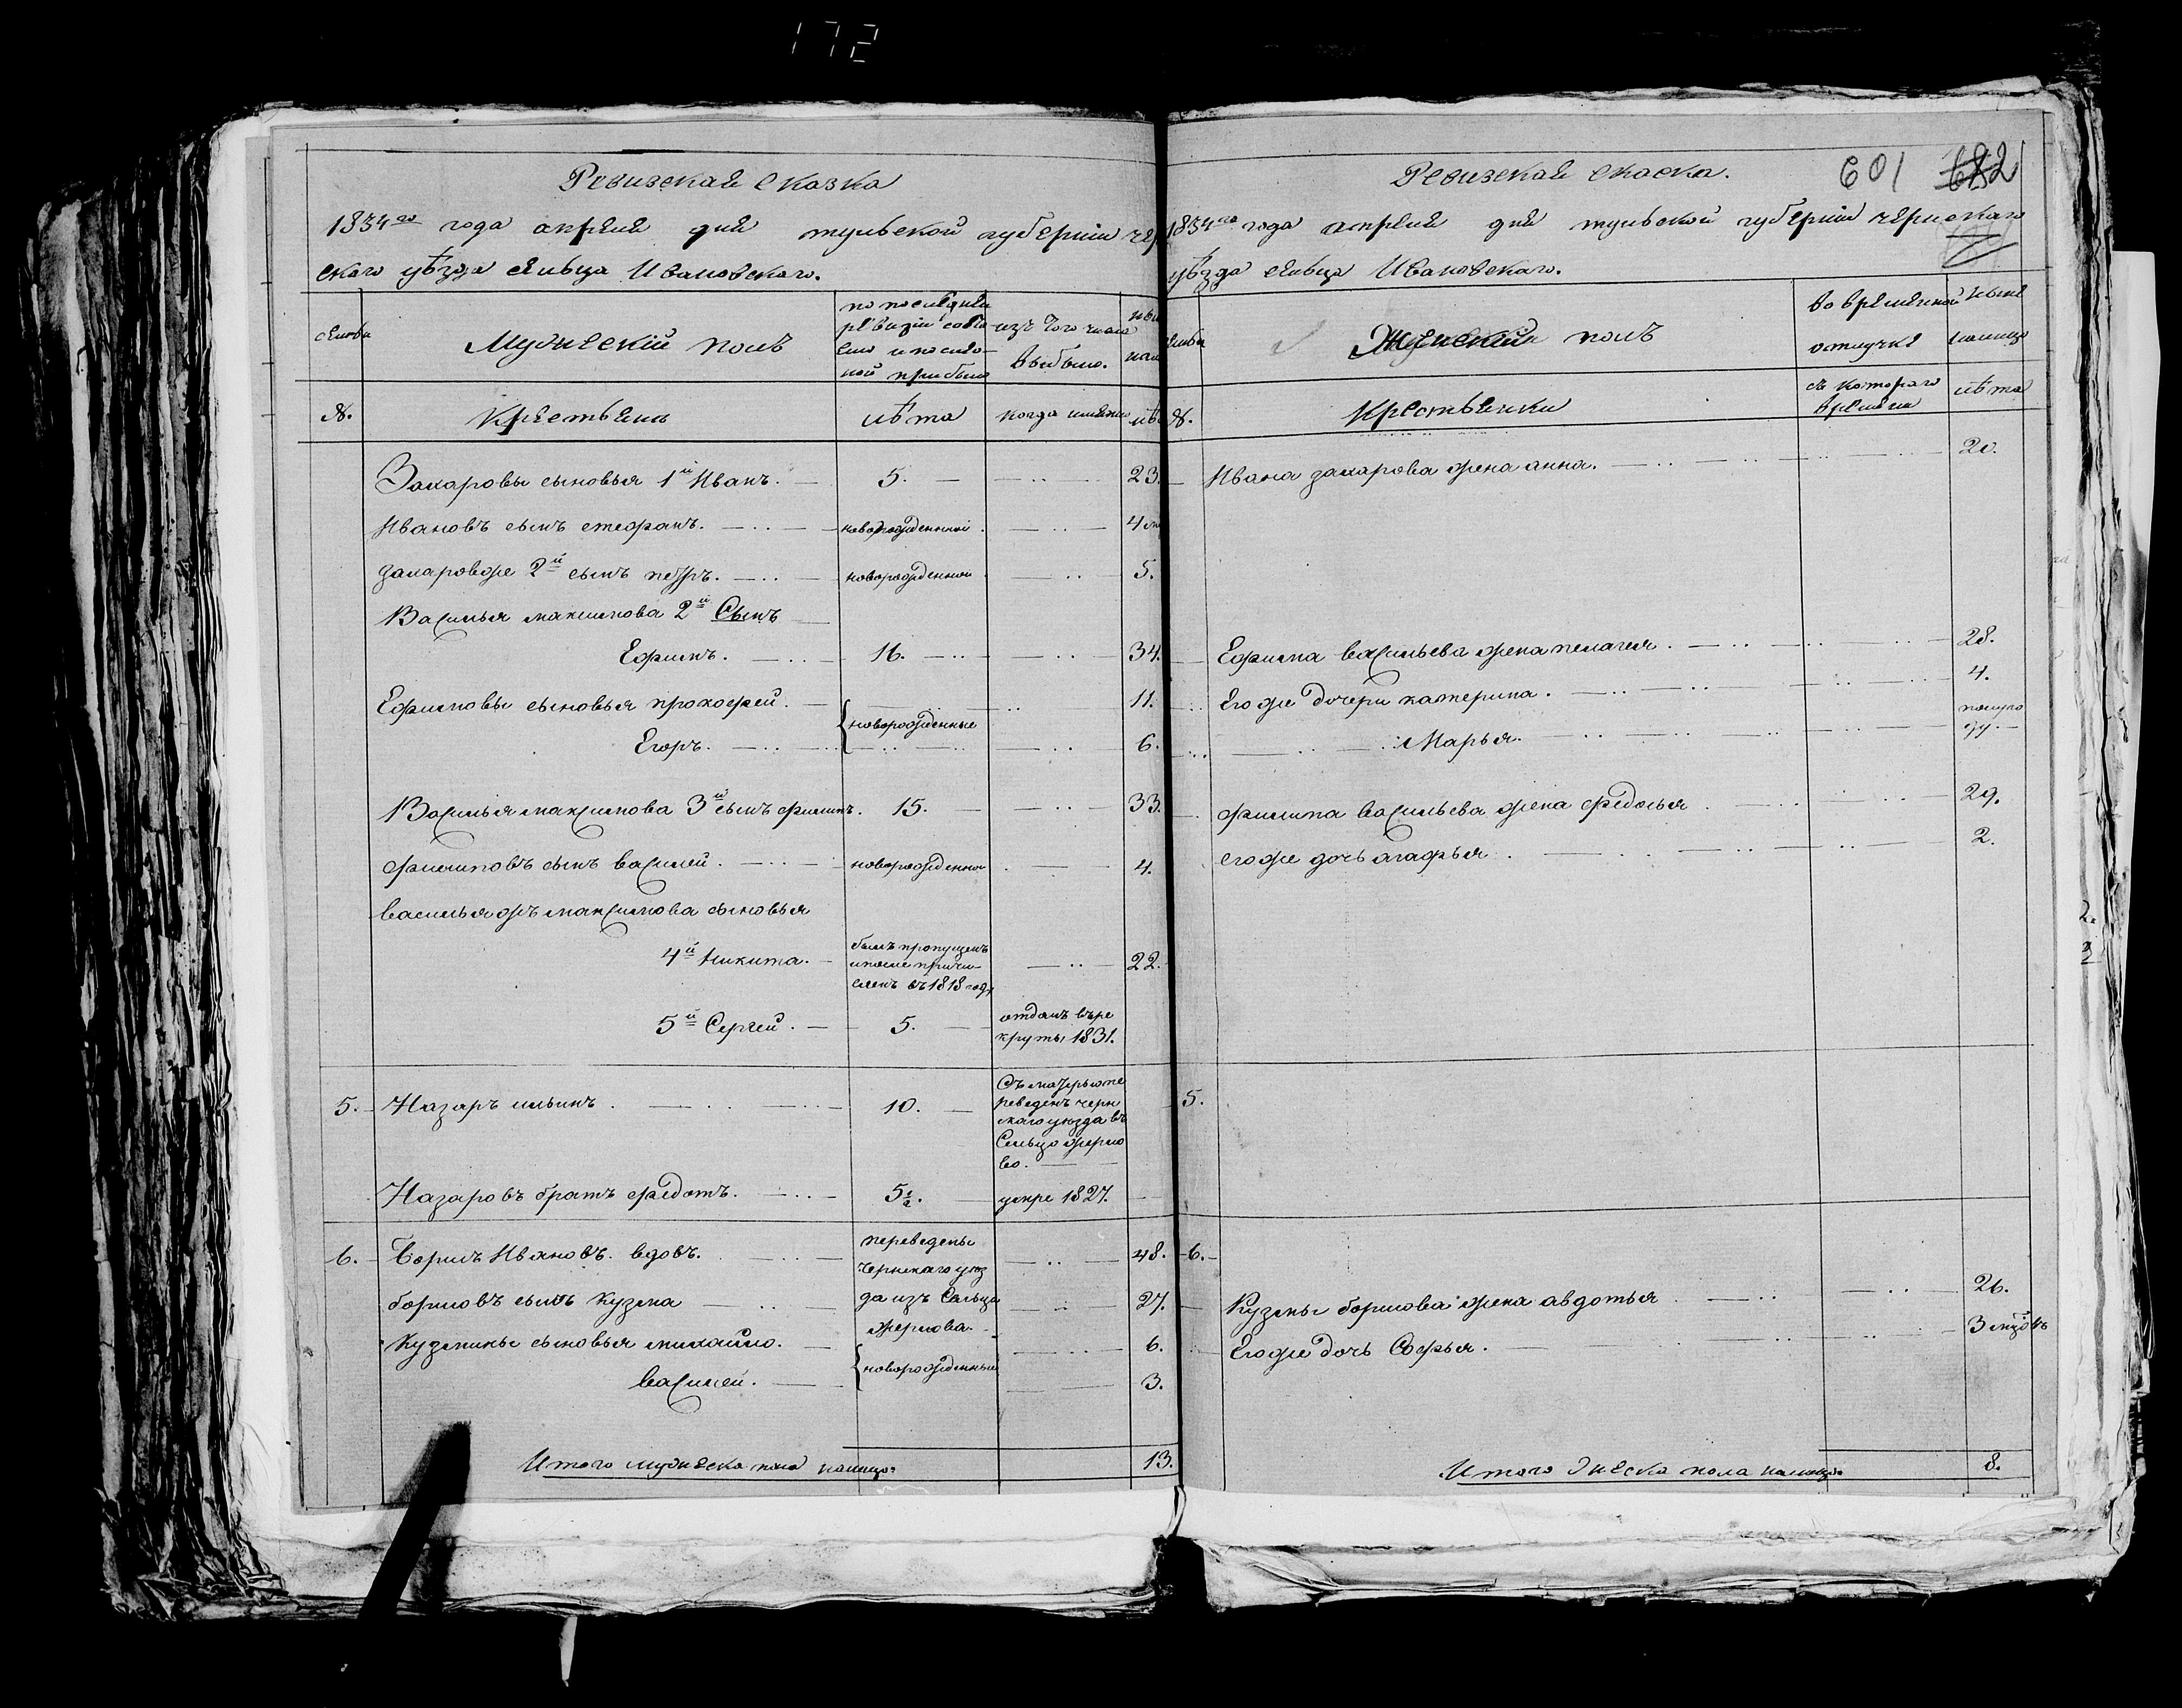 172
Ревизская сказка
1834го года апреля дня тульской губернии чер
ского уѣзда сельца Ивановского.
семьи
Мужескій полъ
по последней
ревизіи состо
яло и после
ной прибыло
из того числа
выбыло.
ны
нали
№.
Крестьянѣ
лѣта
когда имянно
лѣ
Захаровы сыновья 1й Иванъ. 5. 23.
Ивановъ сынъ стефанъ. новорожденной. 4 м
захаровже 2й сынъ петръ. новорожденной 5.
Василья максимова 2й Сынъ
Ефимъ. 16. 34.
Ефимовы сыновья прокофей. 11.
новорожденные
Егоръ. 6.
Василья максимова 3й сынъ филипъ. 15. 33.
филиповъ сынъ василей. новорожденной 4.
васильяжъ максимова сыновья
4й Никита. былъ пропущенъ
и после причи
сленъ въ 1818 году 22.
5й Сергей. 5. отданъ въ ре
круты 1831.
5. Назаръ ильинъ. 10. Съ матерью пе
реведенъ черн
скаго уѣзда въ
Сельцо жерно
во.
Назаровъ братъ федотъ. 5½. умре 1827.
6. Борисъ Ивановъ. вдовъ. переведены
чернскаго уѣз
да изъ Сельца
жернова. 48.
борисовъ сынъ Кузма 27.
Кузмины сыновья михайло. 6.
новорожденные
василей. 3.
Итого мужеска пола налицо. 13.
Ревизская скаска. 601 682
1834го года апреля дня тульской губерніи чернскаго
уѣзда сельца Ивановскаго.
семьи
Женскій полъ
во временной
отлучке
ныне
налицо
№.
Крестьянки
съ котораго
времени
лѣта
Ивана захарова жена анна. 20.
Ефима васильева жена пелагея. 28.
Егоже дочери катерина. 4.
Марья. полуго
ду.
филипа васильева жена федосья 29.
егоже дочь агафья. 2.
5.
6.
Кузмы борисова жена авдотья 26.
Егоже дочь Софья. 3 мцовъ
Итого женска пола налицо. 8.